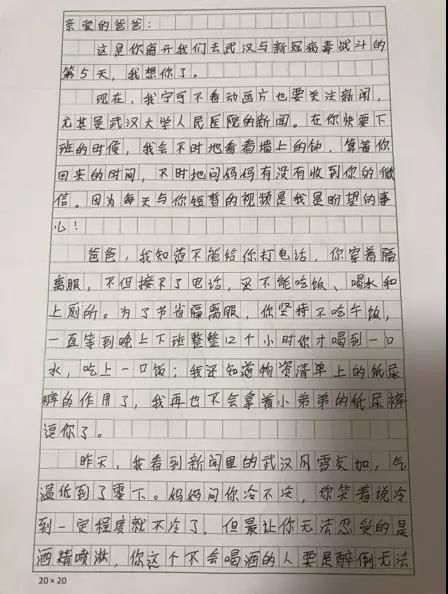 亲爱的爸爸：
这是你离开我们去武汉与新冠病毒战斗的
第5天，我想你了。
现在，我宁可不看动画片也要关注新闻，
尤其是武汉大学人民医院的新闻。在你快要下
班的时候，我会不时地看看墙上的钟，算着你
回来的时间，不时地问妈妈有没有收到你的微
信。因为每天与你短暂的视频是我最盼望的事
儿！
爸爸，我知道不能给你打电话，你穿着隔
离服，不但接不了电话，还不能吃饭、喝水和
上厕所。为了节省隔离服，你坚持不吃午饭，
一直等到晚上下班整整12个小时你才喝到一口
水，吃上一口饭；我还知道物资清单上的纸尿
裤的作用了，我再也不会拿着小弟弟的纸尿裤
逗你了。
昨天，我看到新闻里的武汉风雪交加，气
温低到了零下。妈妈问你冷不冷，你笑着说冷
到一定程度就不冷了，但最让你无法忍受的是
酒精喷淋，你这个不会喝酒的人要是醉倒无法
20×20